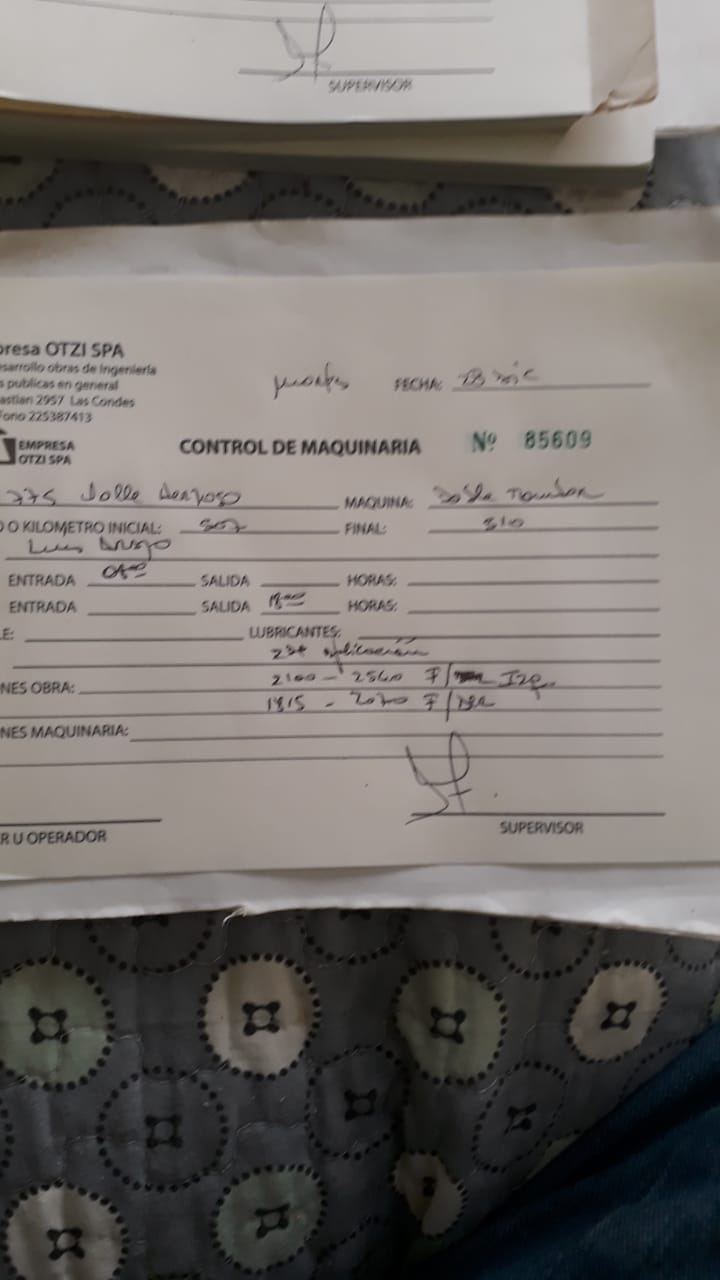 SUPERVISOR
presa OTZI SPA
sarrollo obras de Ingeniería
s publicas en general
astian 2957 Las Condes
fono 225387413
martes FECHA: 23 Dic
EMPRESA
OTZI SPA
CONTROL DE MAQUINARIA Nº 85609
775 Valle Hermoso MAQUINA: Doble Tambor
O KILOMETRO INICIAL: 507 FINAL: 510
Luis
ENTRADA 08:00 SALIDA HORAS:
ENTRADA SALIDA 18:00 HORAS:
E: LUBRICANTES:
aplicación
NES OBRA: 2100 - 2560 F/ Izq.
1815 - 2070 F/Der
NES MAQUINARIA:
R U OPERADOR
SUPERVISOR